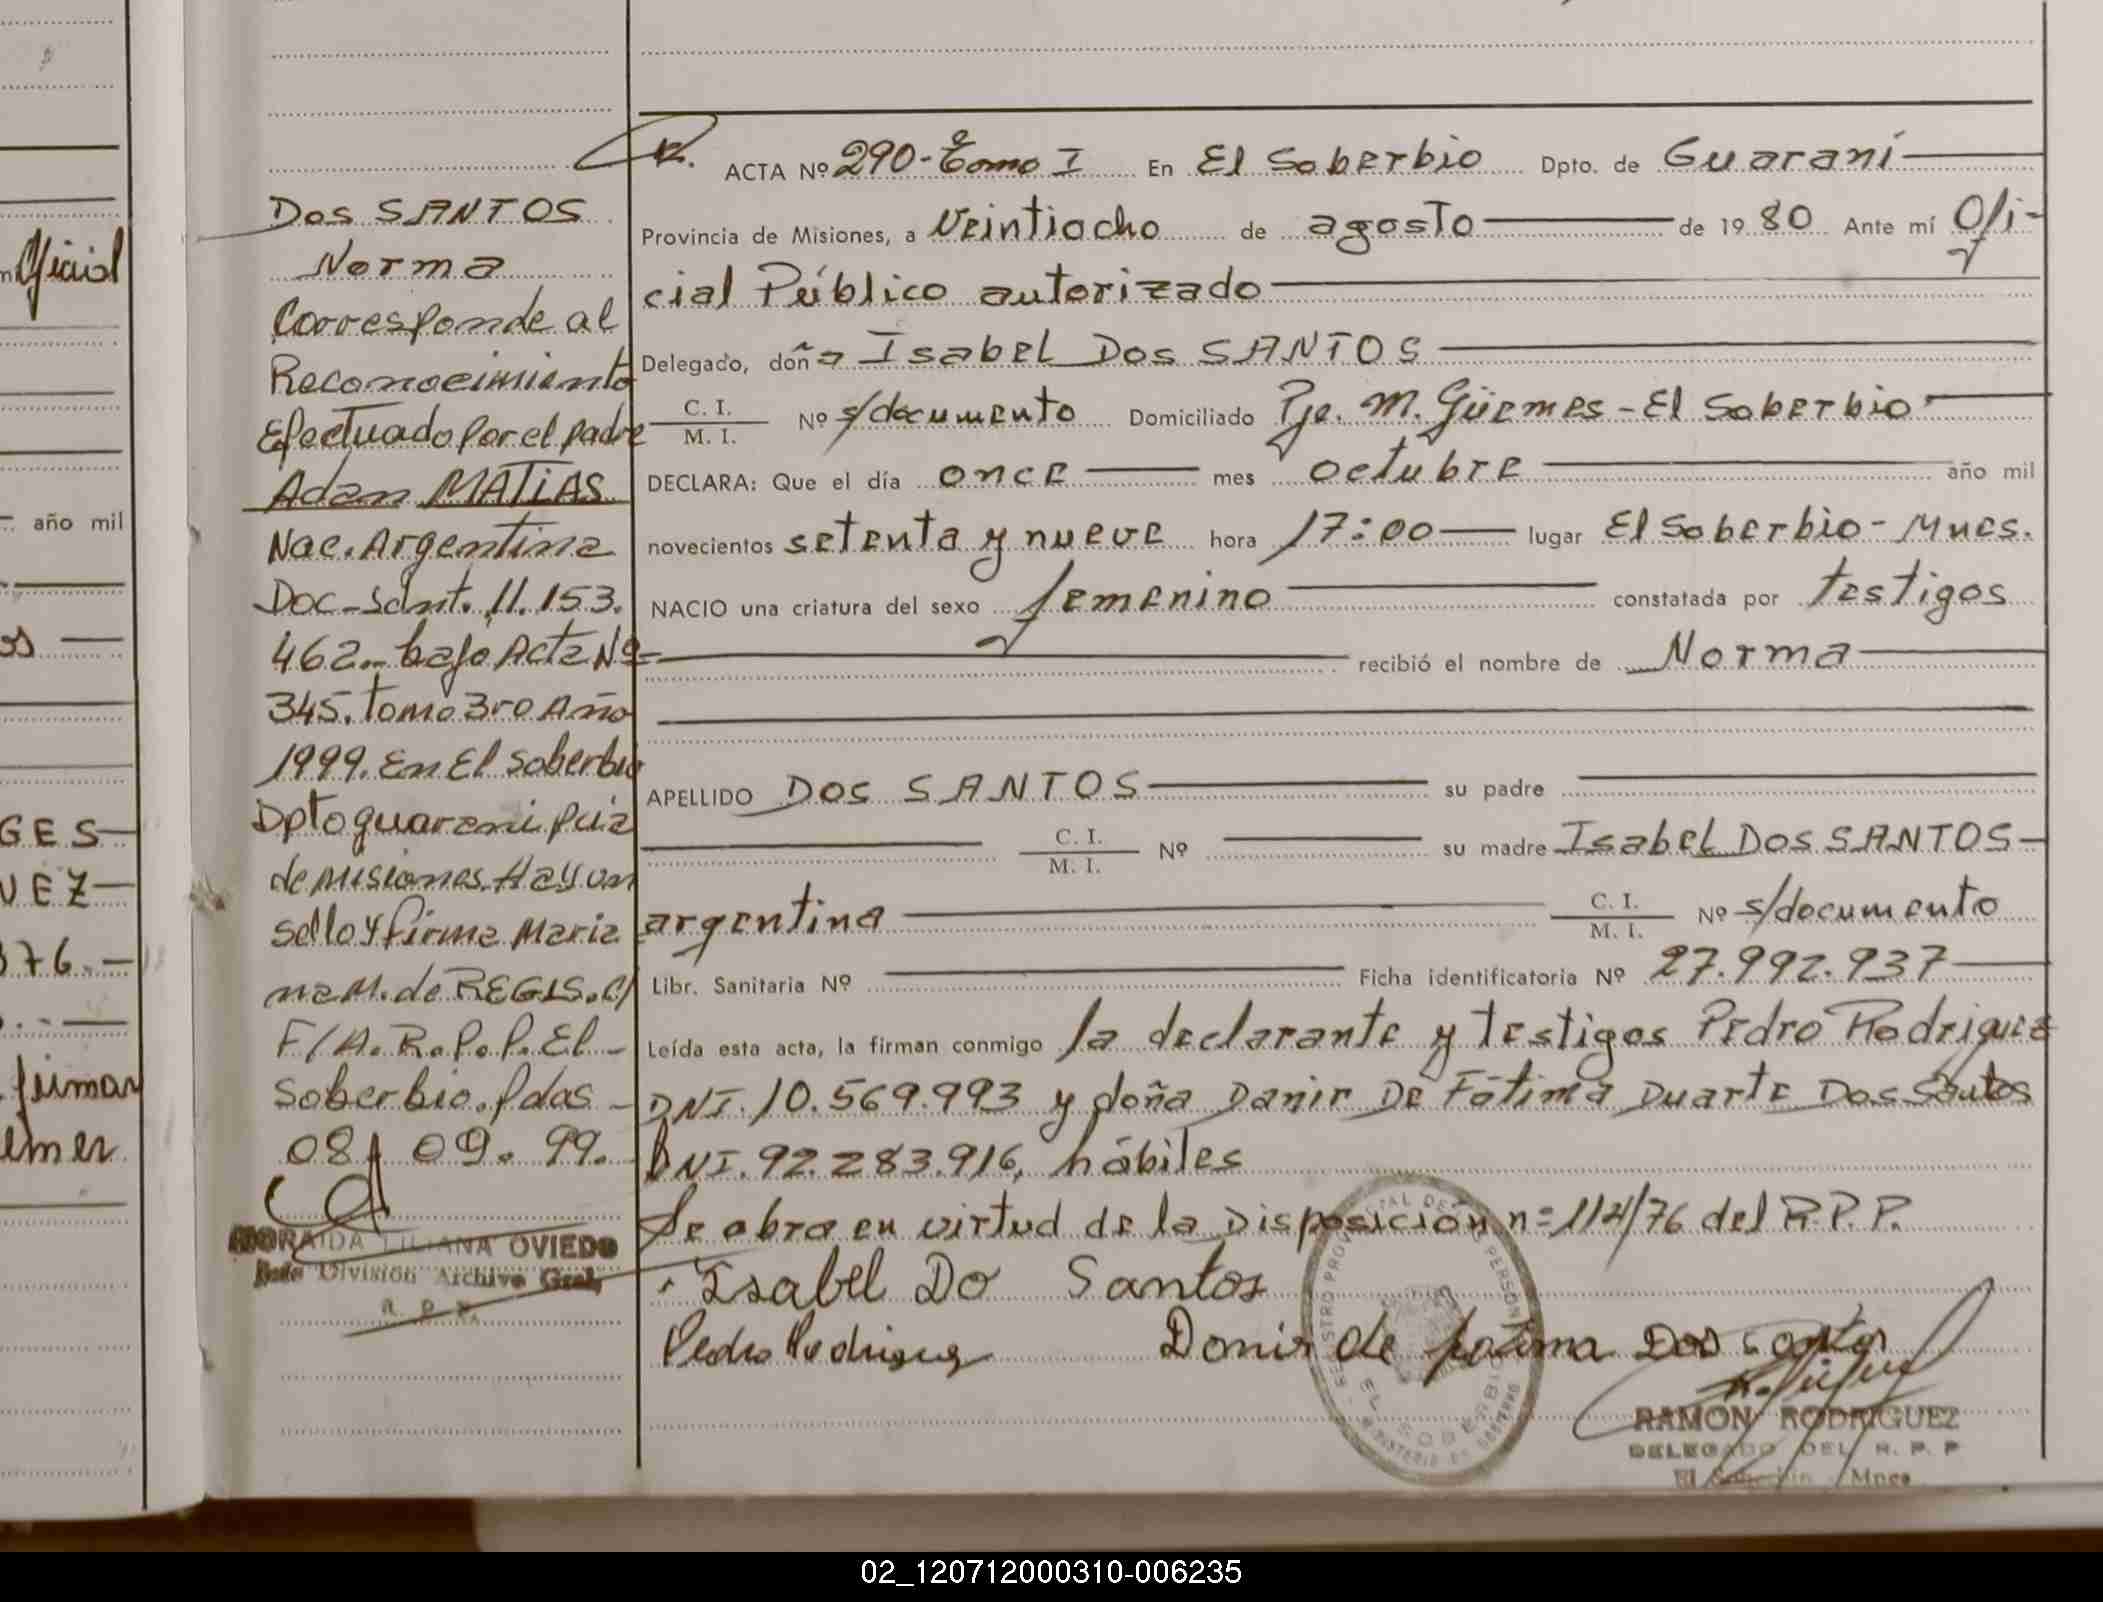 Oficial
año mil
GES
VEZ
376.-
firman
emer
Dos SANTOS
Norma
Corresponde al
Reconocimiento
Efectuado por el padre
Adan MATIAS
Nac. Argentina
Doc-Sdnt. 11.153.
462.- bajo Acta Nº
345. tomo 3ro Año
1999. En El Soberbio
Dpto guarani pcia
de Misiones. Hay un
sello y firma Maria
na M. de REGIS. C/
F/A.R.P.P. El
Soberbio. Pdas
08 09. 99.
LILIANA OVIEDO
División Archivo Gral.
R. P. P.
ACTA Nº 290-Tomo I En El Soberbio Dpto. de Guaraní
Provincia de Misiones, a Veintiocho de agosto de 1980 Ante mí Ofi-
cial Público autorizado
Delegado, doña Isabel Dos SANTOS
C. I. / M. I. Nº s/documento Domiciliado Pje. M. Güemes - El Soberbio
DECLARA: Que el día once mes octubre año mil
novecientos setenta y nueve hora 17:00 lugar El Soberbio - Mnes.
NACIO una criatura del sexo femenino constatada por testigos
recibió el nombre de Norma
APELLIDO Dos SANTOS su padre
C. I. / M. I. Nº su madre Isabel Dos SANTOS
argentina C. I. / M. I. Nº s/documento
Libr. Sanitaria Nº Ficha identificatoria Nº 27.992.937
Leída esta acta, la firman conmigo la declarante y testigos Pedro Rodriguez
DNI. 10.569.993 y doña Danir De Fátima Duarte Dos Santos
DNI. 92.283.916, hábiles
Se abra en virtud de la Disposición nº 114/76 del R.P.P.
Isabel Do Santos
Pedro Rodriguez Donir de fatima Dos santos
RAMON RODRIGUEZ
DELEGADO DEL R. P. P
El Soberbio Mnes
02_120712000310-006235